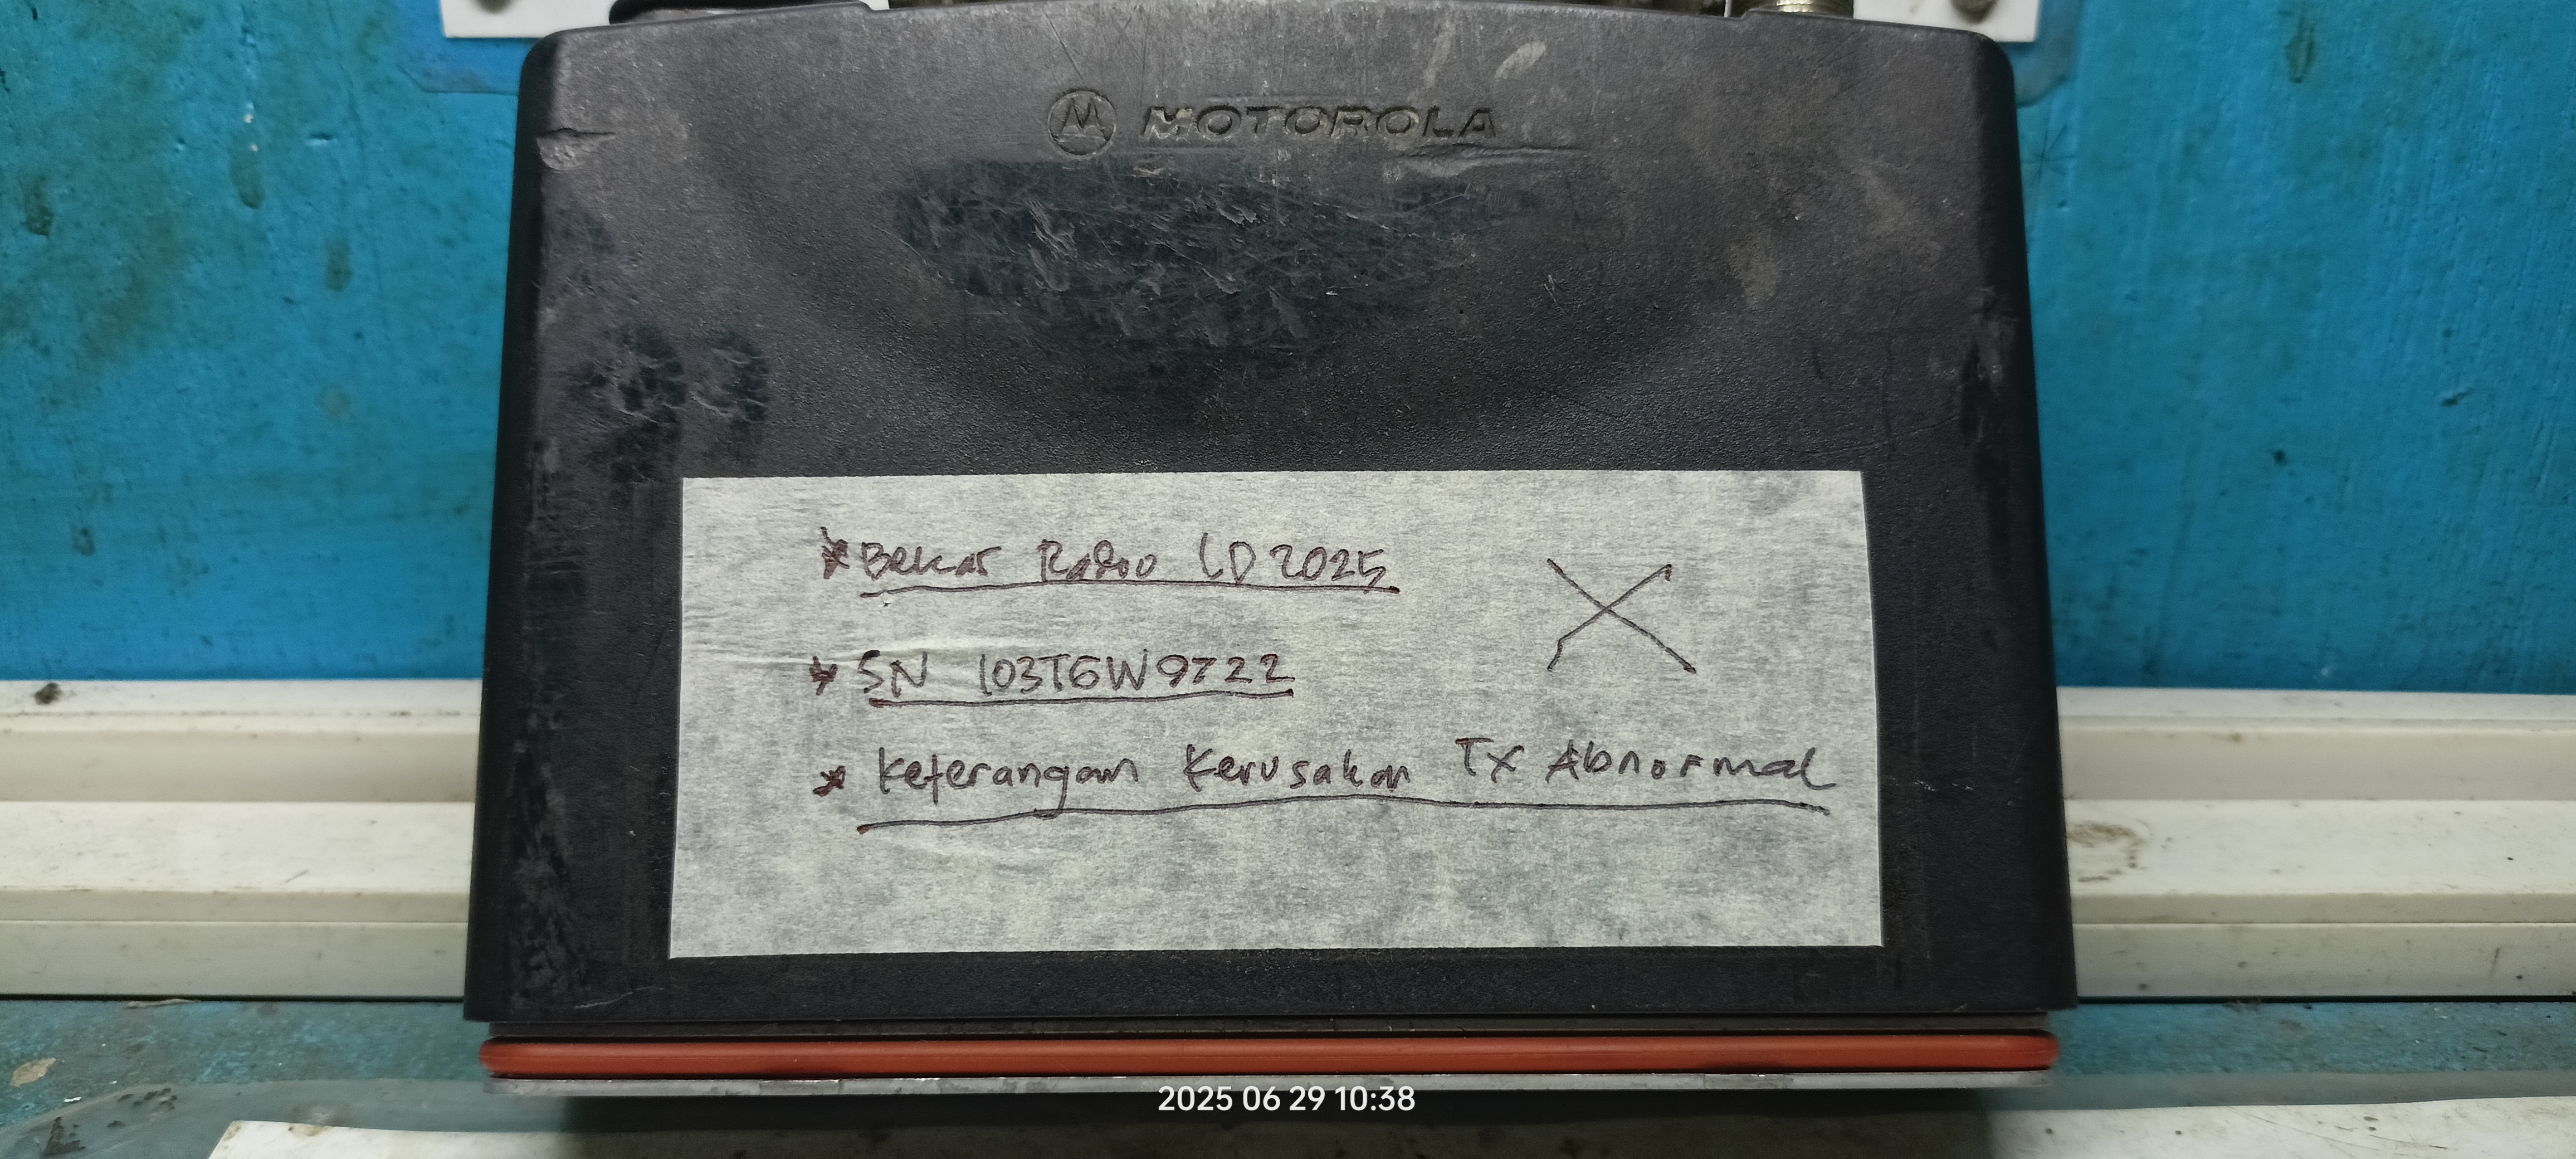 MOTOROLA
* Bekas Radio LD2025
* SN 103TGW9722
* Keterangan Kerusakan Tx Abnormal
2025 06 29 10:38